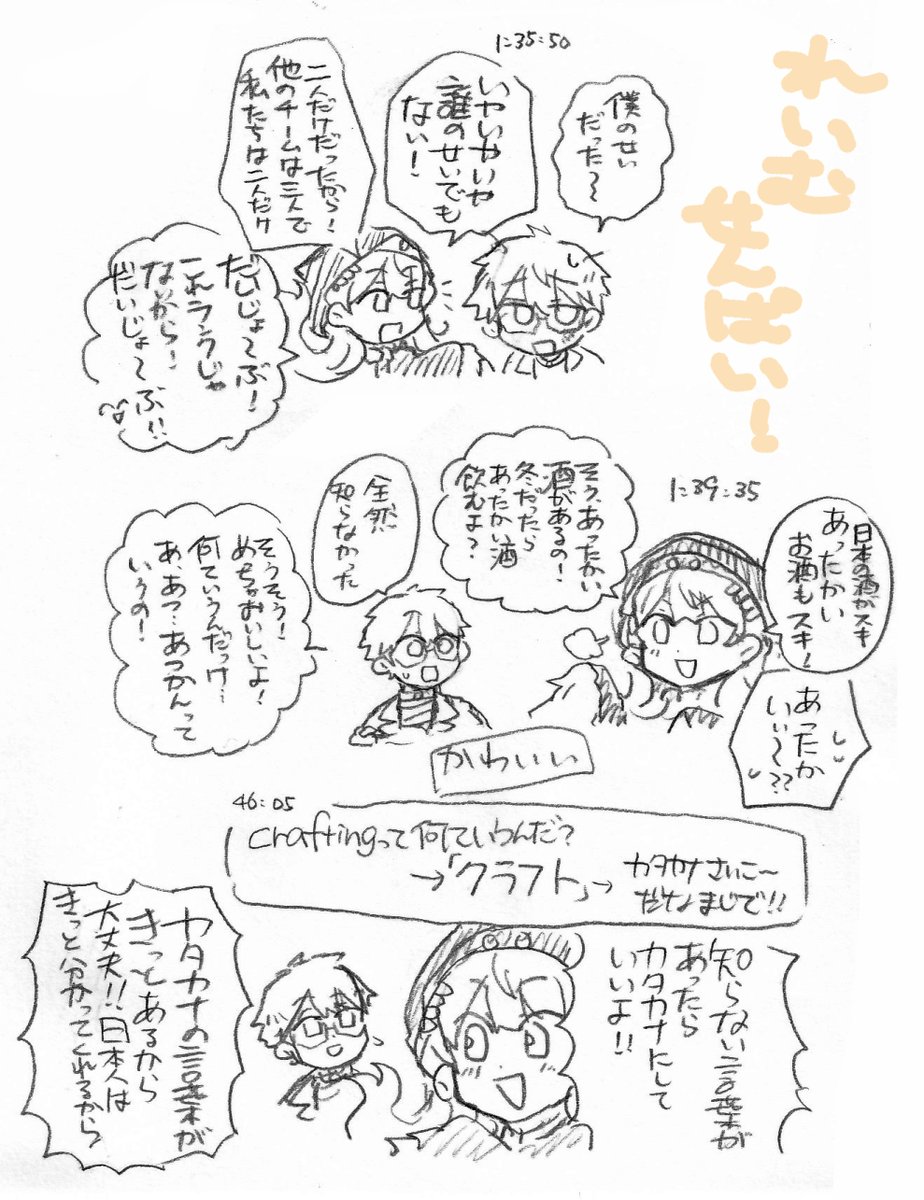 れいむ
せんぱい!
1:35:50
僕のせい
だった〜
いやいやいや
誰のせいでも
ない!
二人だけだったから!
他のチームは三人で
私たちは二人だけ
だいじょーぶ!
これランクじゃ
ないから!
だいじょーぶ!!
1:39:35
日本の酒がスキ
あったかい
お酒もスキ!
あったか
いい〜??
そう、あったかい
酒があるの!
冬だったら
あたかい酒
飲むよ?
全然
知らなかった
そうそう!
めちゃおいしいよ!
何ていうんだっけ…
あ、あつ…あつかんって
いうの!
かわいい
46:05
craftingって何ていうんだ?
→「クラフト」→ カタカナさいこ〜
だなまじで!!
知らない言葉が
あったら
カタカナにして
いいよ!!
カタカナの言葉が
きっとあるから
大丈夫!!日本人は
きっと分かってくれるから